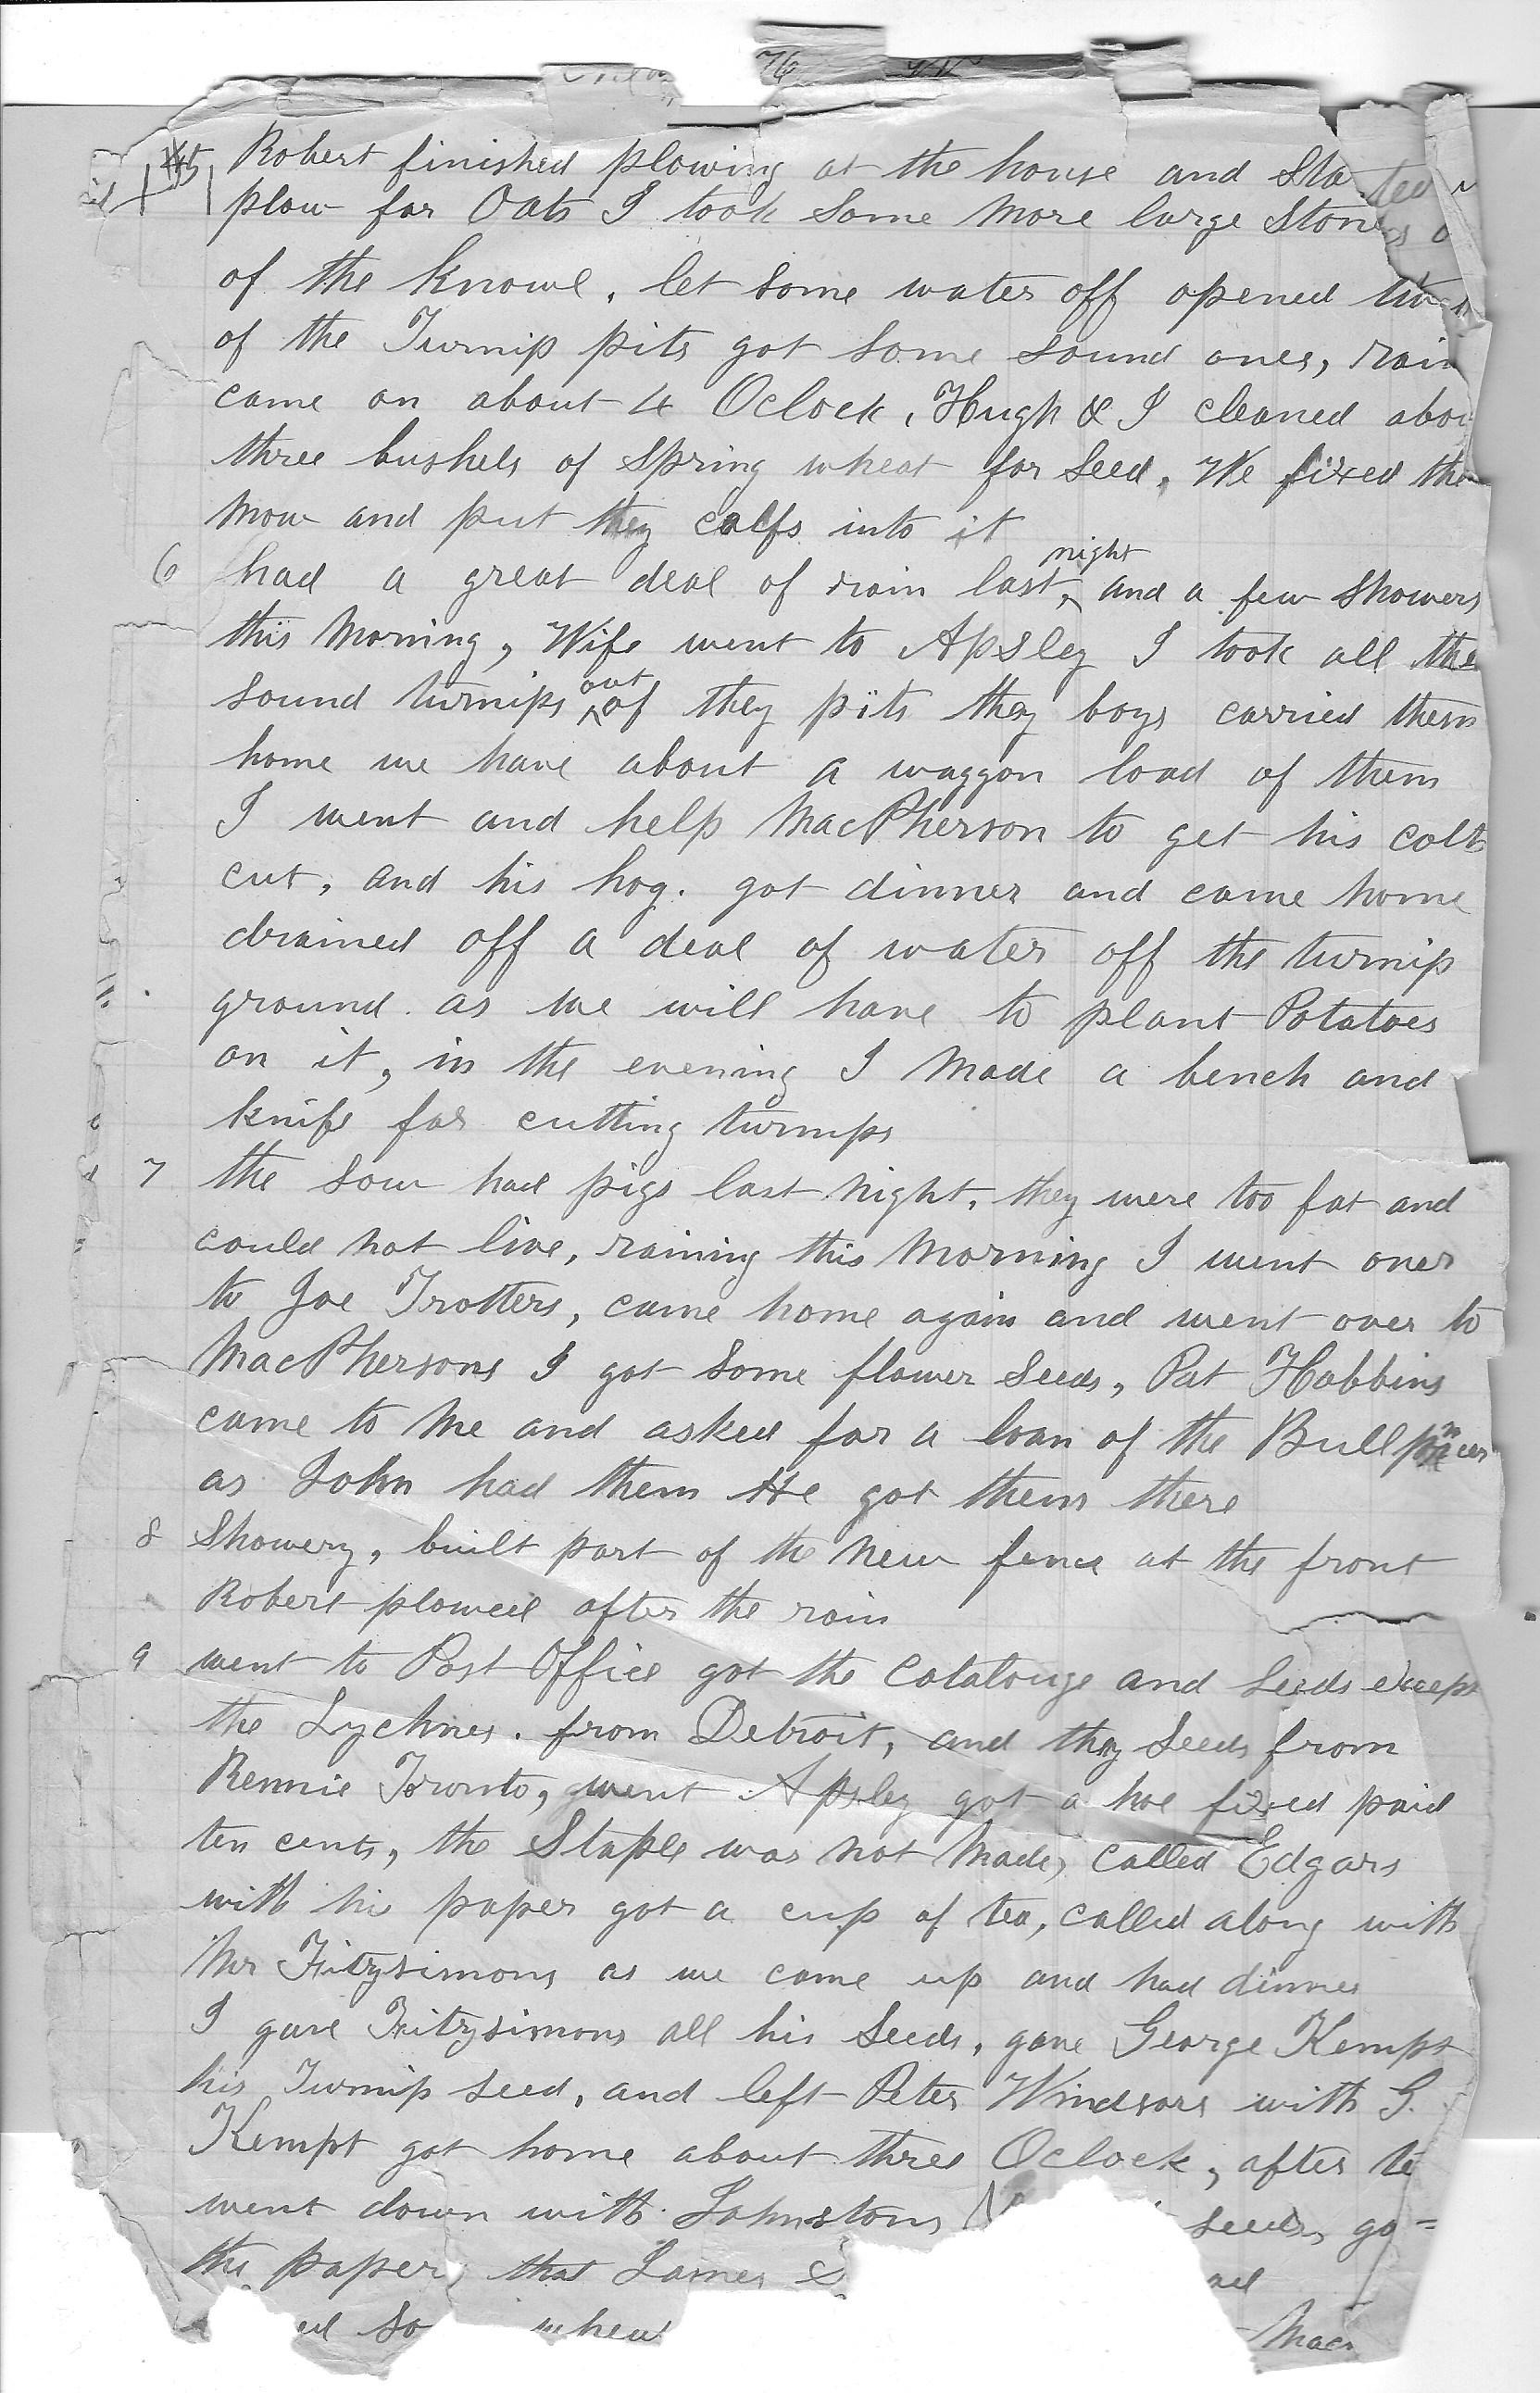 76
5 Robert finished plowing at the house and Started
plow for Oats I took Some More large Stones
of the Knowl, let Some water off opened two
of the Turnip pits got Some Sound ones, rain
came on about 4 Oclock, Hugh & I cleaned abou
three bushels of Spring wheat for Seed, We fixed the
Mow and put they calfs into it
6 had a great deal of rain last night, and a few Showers
this Morning, Wife went to Apsley I took all the
Sound turnips out of they pits they boys carried them
home we have about a waggon load of them
I went and help MacPherson to get his colt
cut, and his hog. got dinner and came home
drained off a deal of water off the turnip
ground. as we will have to plant Potatoes
on it, in the evening I Made a bench and
knife for cutting turnips
7 the Sow had pigs last night, they were too fat and
could not live, raining this Morning I went over
to Joe Trotters, came home again and went over to
MacPhersons I got Some flower Seeds, Pat Hobbins
came to Me and asked for a loan of the Bull
as John had them He got them there
8 Showery, built part of the New fence at the front
Robert plowed after the rain
9 went to Post Office got the Catalouge and Seeds except
the Lychnes. from Detroit, and they Seeds from
Rennie Toronto, went Apsley got a hoe fixed paid
ten cents, the Staple was not Made, Called Edgars
with his paper got a cup of tea, called along with
Mr Fitzsimons as we came up and had dinner
I gave Fitzsimons all his Seeds, gave George Kempt
his Turnip Seed, and left Peter Windsors with G.
Kempt got home about three Oclock, after te
went down with Johnstons seeds, go=
the paper, that James &
ed So when